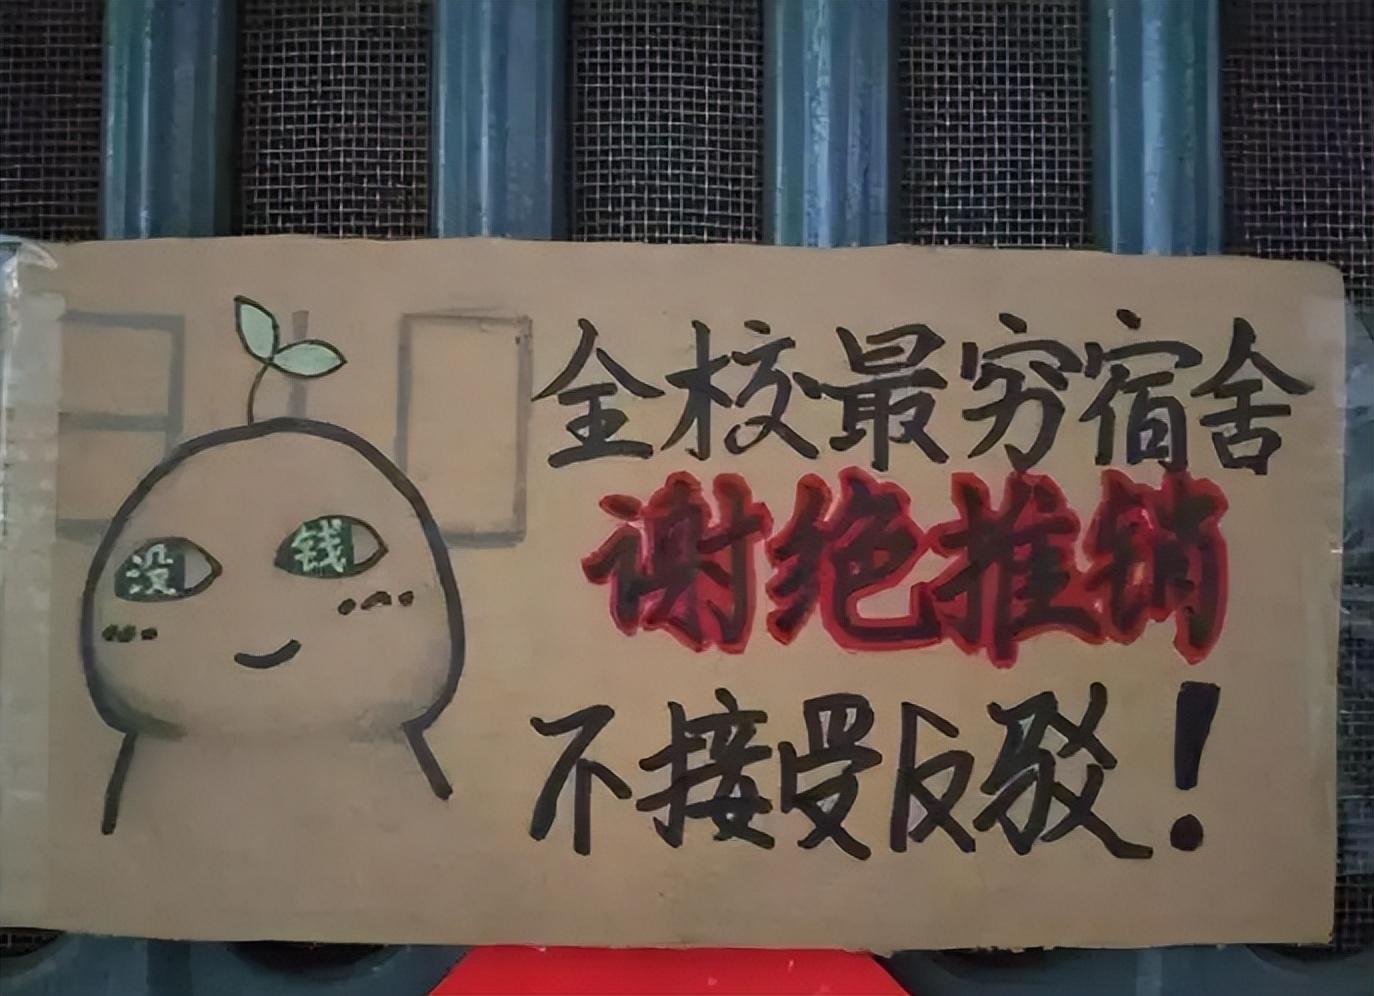 全校最穷宿舍
谢绝推销
不接受反驳！
没钱